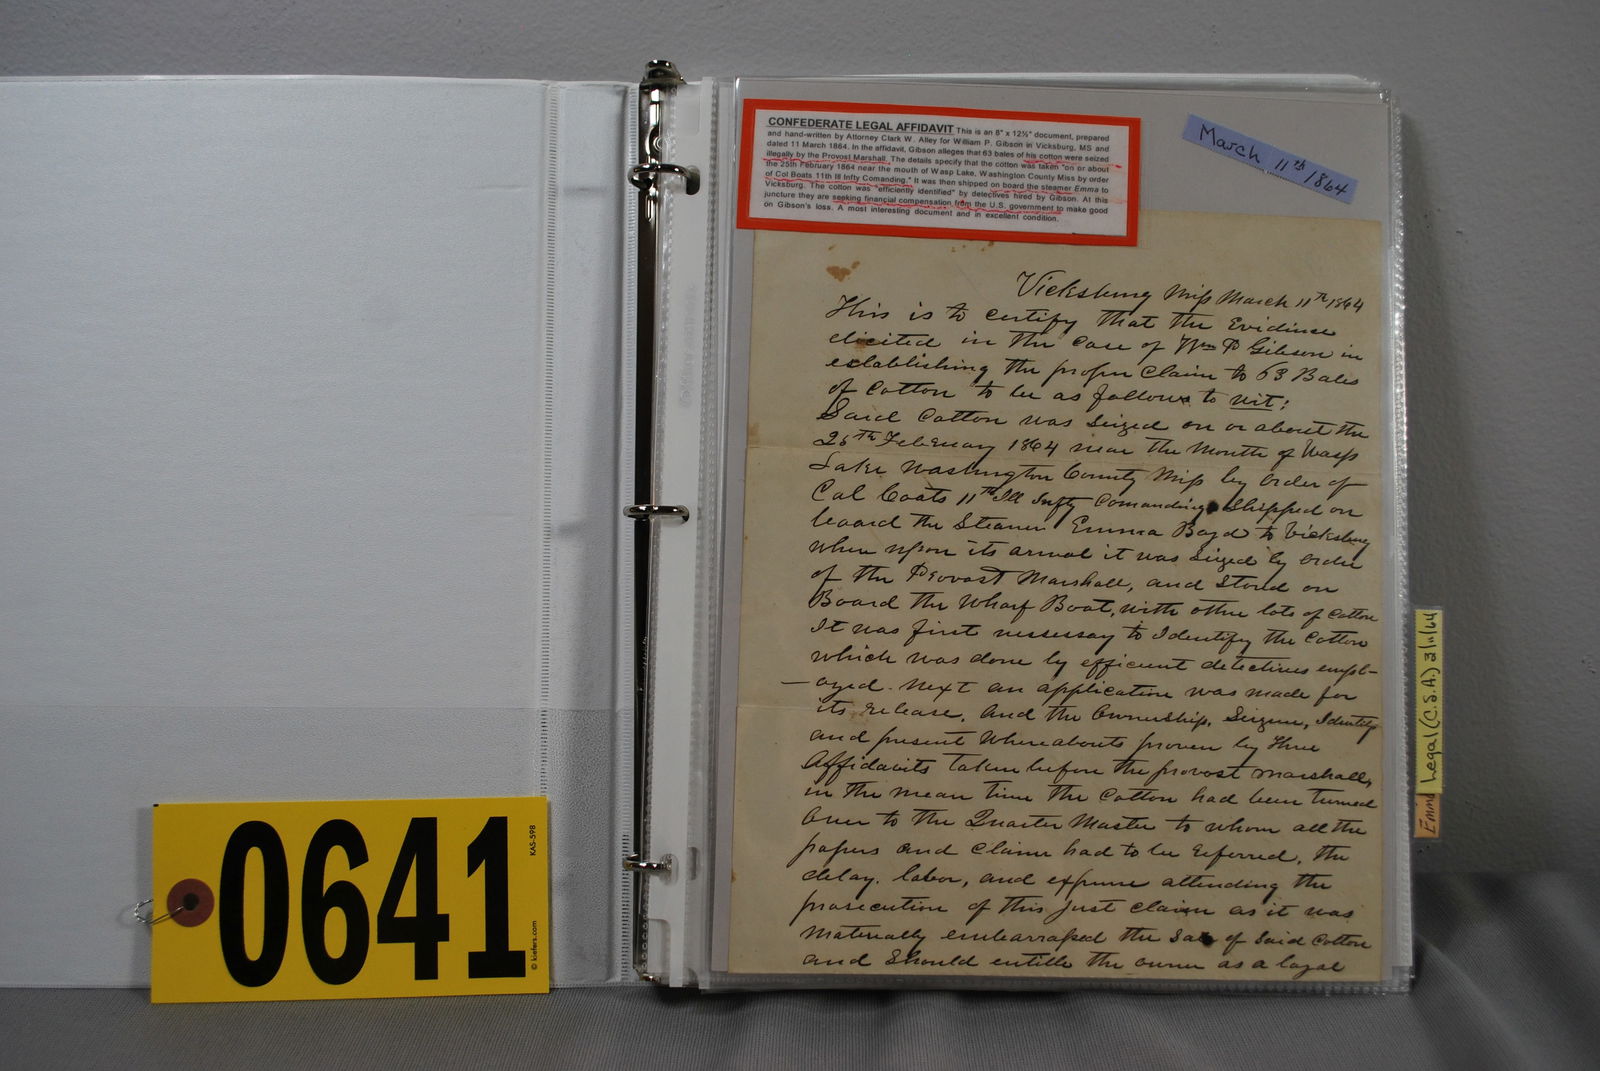 CONFEDERATE LEGAL AFFIDAVIT This is an 8" x 12½" document, prepared
and hand-written by Attorney Clark W. Alley for William P. Gibson in Vicksburg, MS and
dated 11 March 1864. In the affidavit, Gibson alleges that 63 bales of his cotton were seized
illegally by the Provost Marshall. The details specify that the cotton was taken "on or about
the 25th February 1864 near the mouth of Wasp Lake, Washington County Miss by order
of Col Boats 11th Ill Infty Comanding." It was then shipped on board the steamer Emma to
Vicksburg. The cotton was "efficiently identified" by detectives hired by Gibson. At this
juncture they are seeking financial compensation from the U.S. government to make good
on Gibson's loss. A most interesting document and in excellent condition.
March 11th 1864
Vicksburg Miss March 11th 1864
This is to certify that the Evidence
elicited in the case of Wm P Gibson in
establishing the proper Claim to 63 Bales
of Cotton to be as follows to wit:
Said Cotton was Seized on or about the
25th February 1864 near the Mouth of Wasp
Lake Washington County Miss by order of
Col Coats 11th Ill Infty Comanding Shipped on
board the Steamer Emma Boyd to Vicksburg
when upon its arival it was Seized by order
of the Provost Marshall, and Stored on
Board the Wharf Boat, with other lots of Cotton
It was first nessessay to Identify the Cotton
which was done by efficient detectives empl-
-oyed. Next an application was made for
its release, and the Ownership, Seizure, Identity
and present Whereabouts proven by three
Affidavits taken before the provost marshall,
in the mean time the Cotton had been turned
Over to the Quarter Master to whom all the
papers and Claim had to be referred, the
delay, labor, and expense attending the
prosecution of this just Claim as it was
Materially embarrassed the Sale of Said Cotton
and Should entitle the owner as a loyal
Legal (C.S.A.) 3/11/64
Emma
0641
KAS-598
© kiefers.com